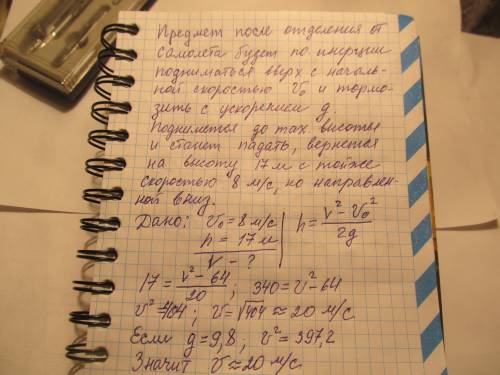 Предмет после отделения от
самолета будет по инерции
подниматься вверх с началь-
ной скоростью V₀ и тормо-
зить с ускорением g.
Поднимется до max высоты
и станет падать, вернется
на высоту 17 м с той же
скоростью 8 м/с, но направлен-
ной вниз.
Дано: V₀ = 8 м/с | h = (V² - V₀²)/2g
h = 17 м
V - ?
17 = (V² - 64)/20 ; 340 = V² - 64
V² = 404 ; V = √404 ≈ 20 м/с
Если g = 9,8 ; V² = 397,2
Значит V ≈ 20 м/с